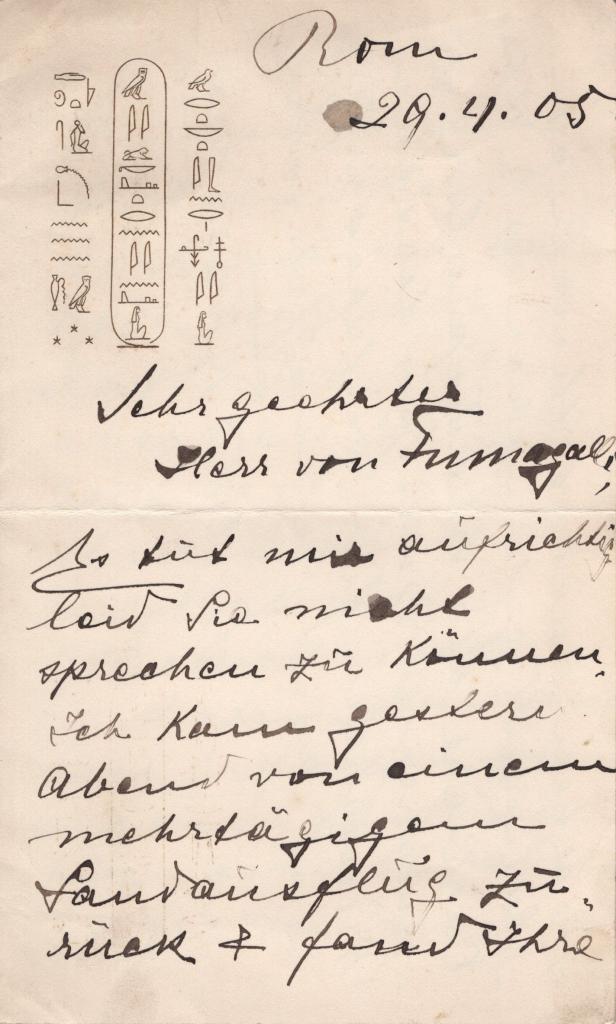 Rom
29.4.05
Sehr geehrter
Herr von Fumagalli,
Es tut mir aufrichtig
leid Sie nicht
sprechen zu können.
Ich kam gestern
Abend von einem
mehrtägigem
Landausflug zu-
rück & fand Ihre